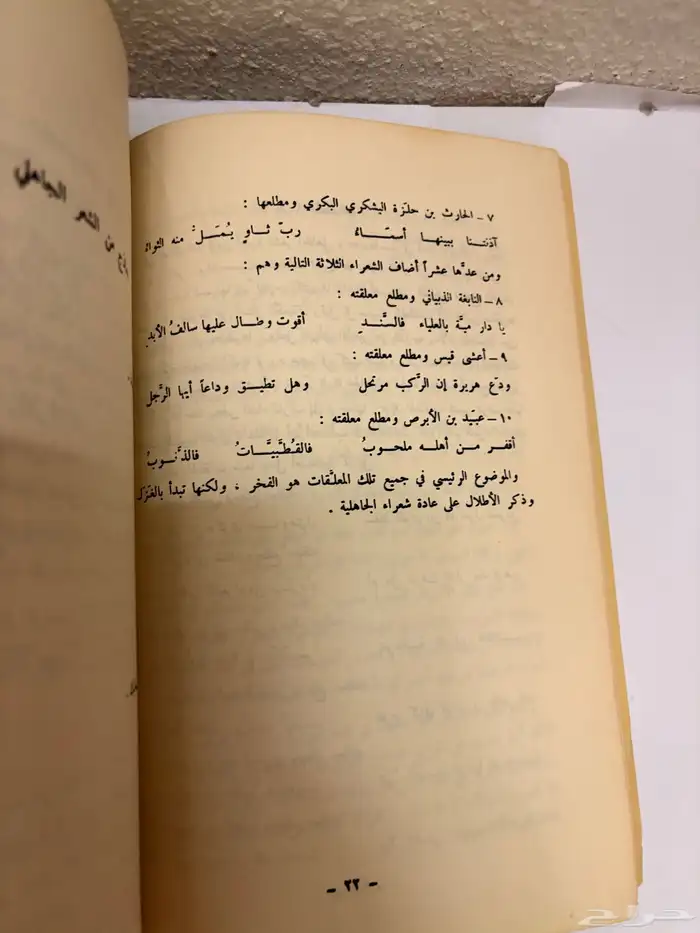 ٧ ـ الحارث بن حلزة اليشكري البكري ومطلعها :
آذنتنا ببينها أسمَاءُ ربّ ثاوٍ يُمَلُّ منه الثواءُ
ومن عدَّها عشراً أضاف الشعراء الثلاثة التالية وهم :
٨ ـ النابغة الذبياني ومطلع معلقته :
يا دار ميَّة بالعلياء فالسَّندِ أقوت وطال عليها سالفُ الأبدِ
٩ ـ أعشى قيس ومطلع معلقته :
ودّع هريرة إن الرَّكب مرتحل وهل تطيق وداعاً أيها الرَّجل
١٠ ـ عبَيْد بن الأبرص ومطلع معلقته :
أقفر من أهله ملحوبُ فالقُطَّبيَّاتُ فالذَّنوبُ
والموضوع الرئيسي في جميع تلك المعلَّقات هو الفخر ، ولكنها تبدأ بالغَزَل
وذكر الأطلال على عادة شعراء الجاهلية .
ـ ٢٢ ـ
حراج